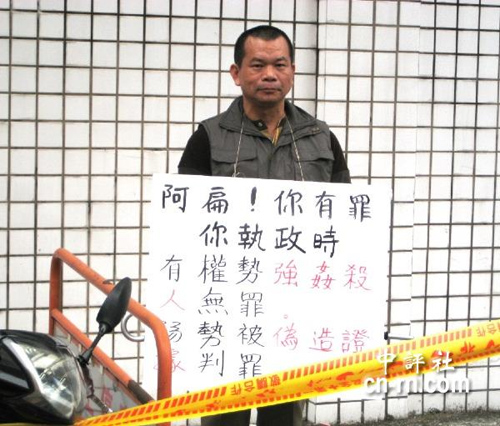 阿扁！你有罪
你執政時
有權勢強姦殺
人無罪。
勢被偽造證
判罪
敬請合作
中評社
cn-rn.com